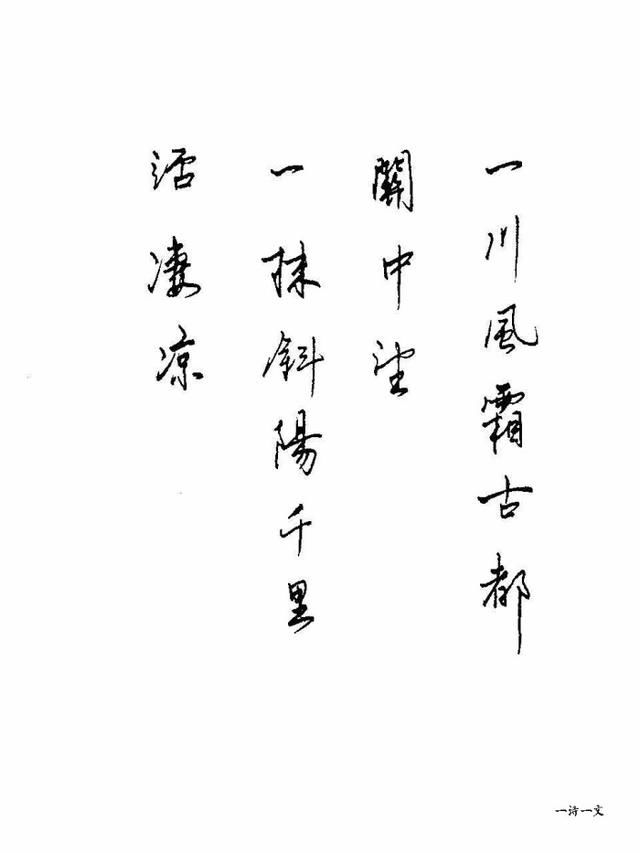 一川風霜古都
關中望
一抹斜陽千里
話凄凉
一诗一文